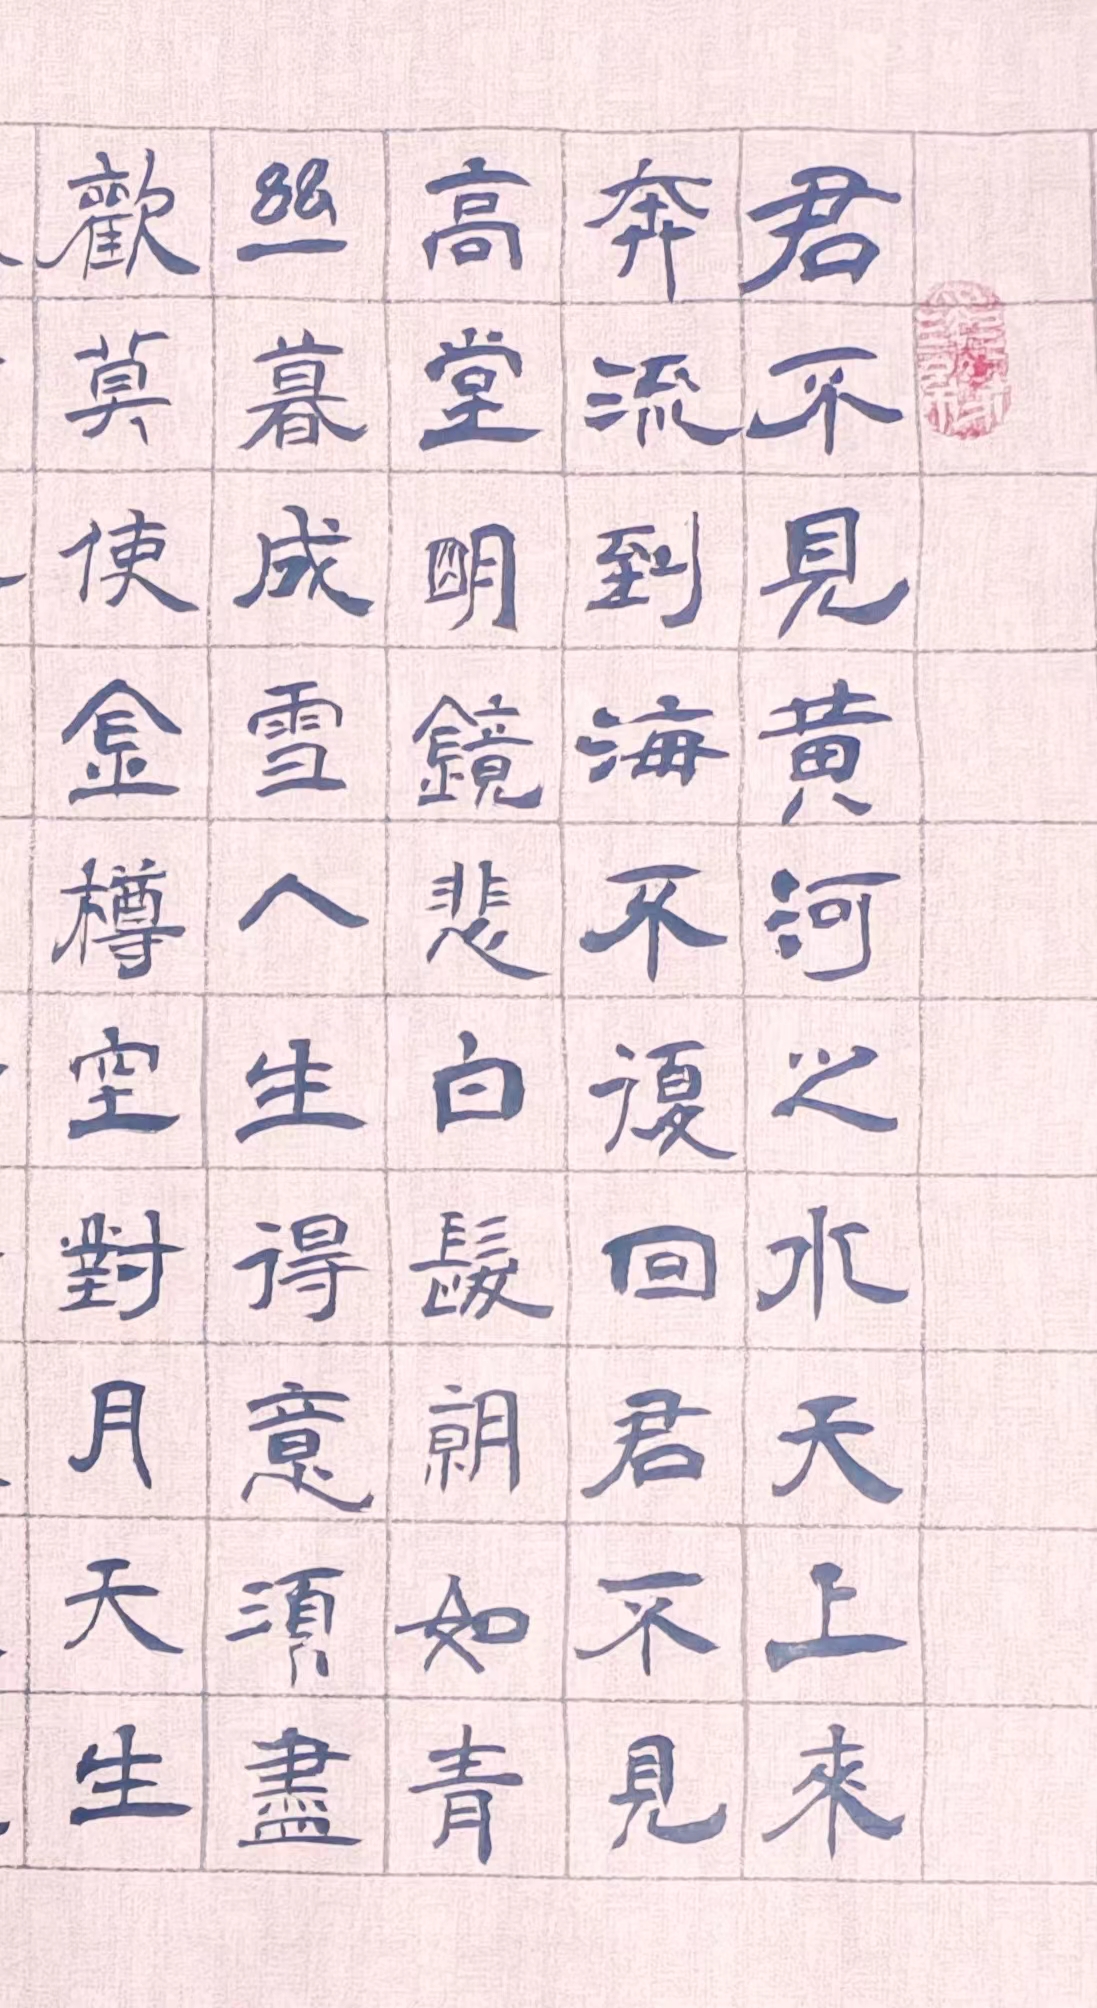 君不見黄河之水天上來
奔流到海不復回君不見
高堂明鏡悲白髮朝如青
丝暮成雪人生得意須盡
歡莫使金樽空對月天生